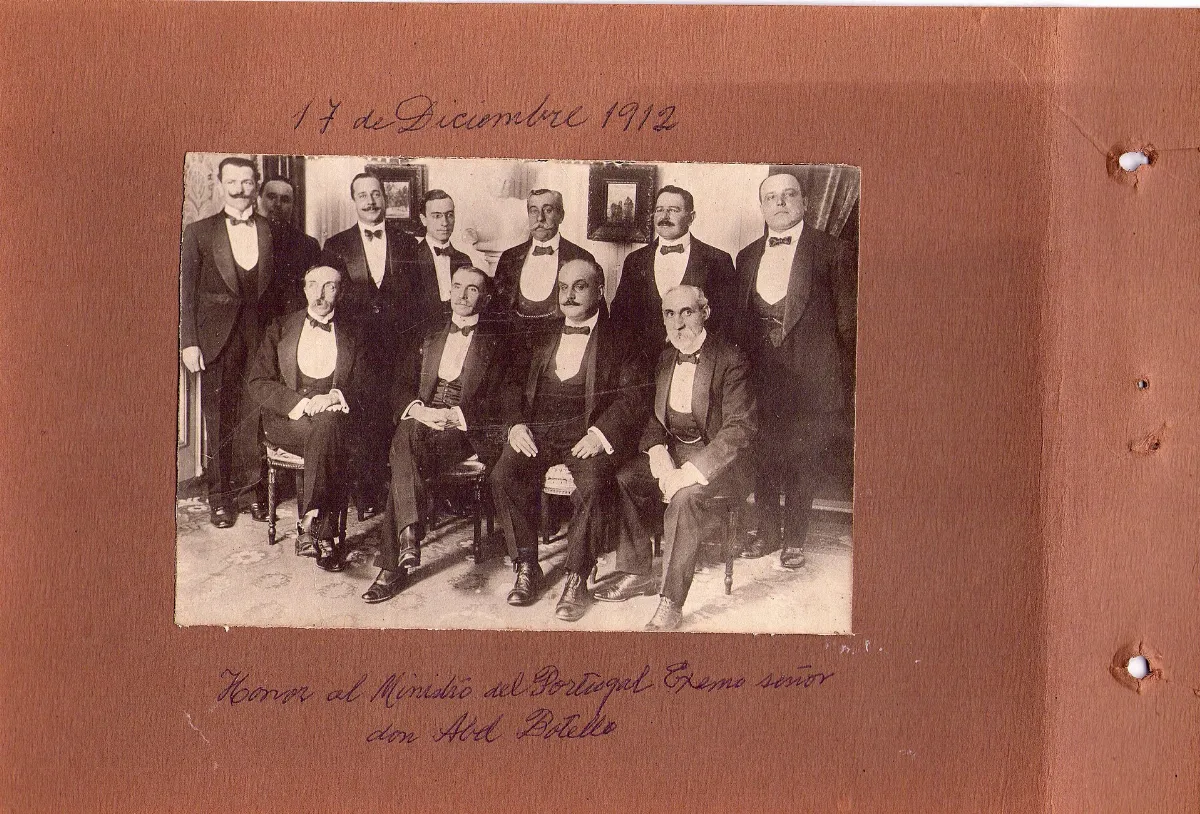 17 de Diciembre 1912
Honor al Ministro del Portugal Exemo señor
don Abel Botello